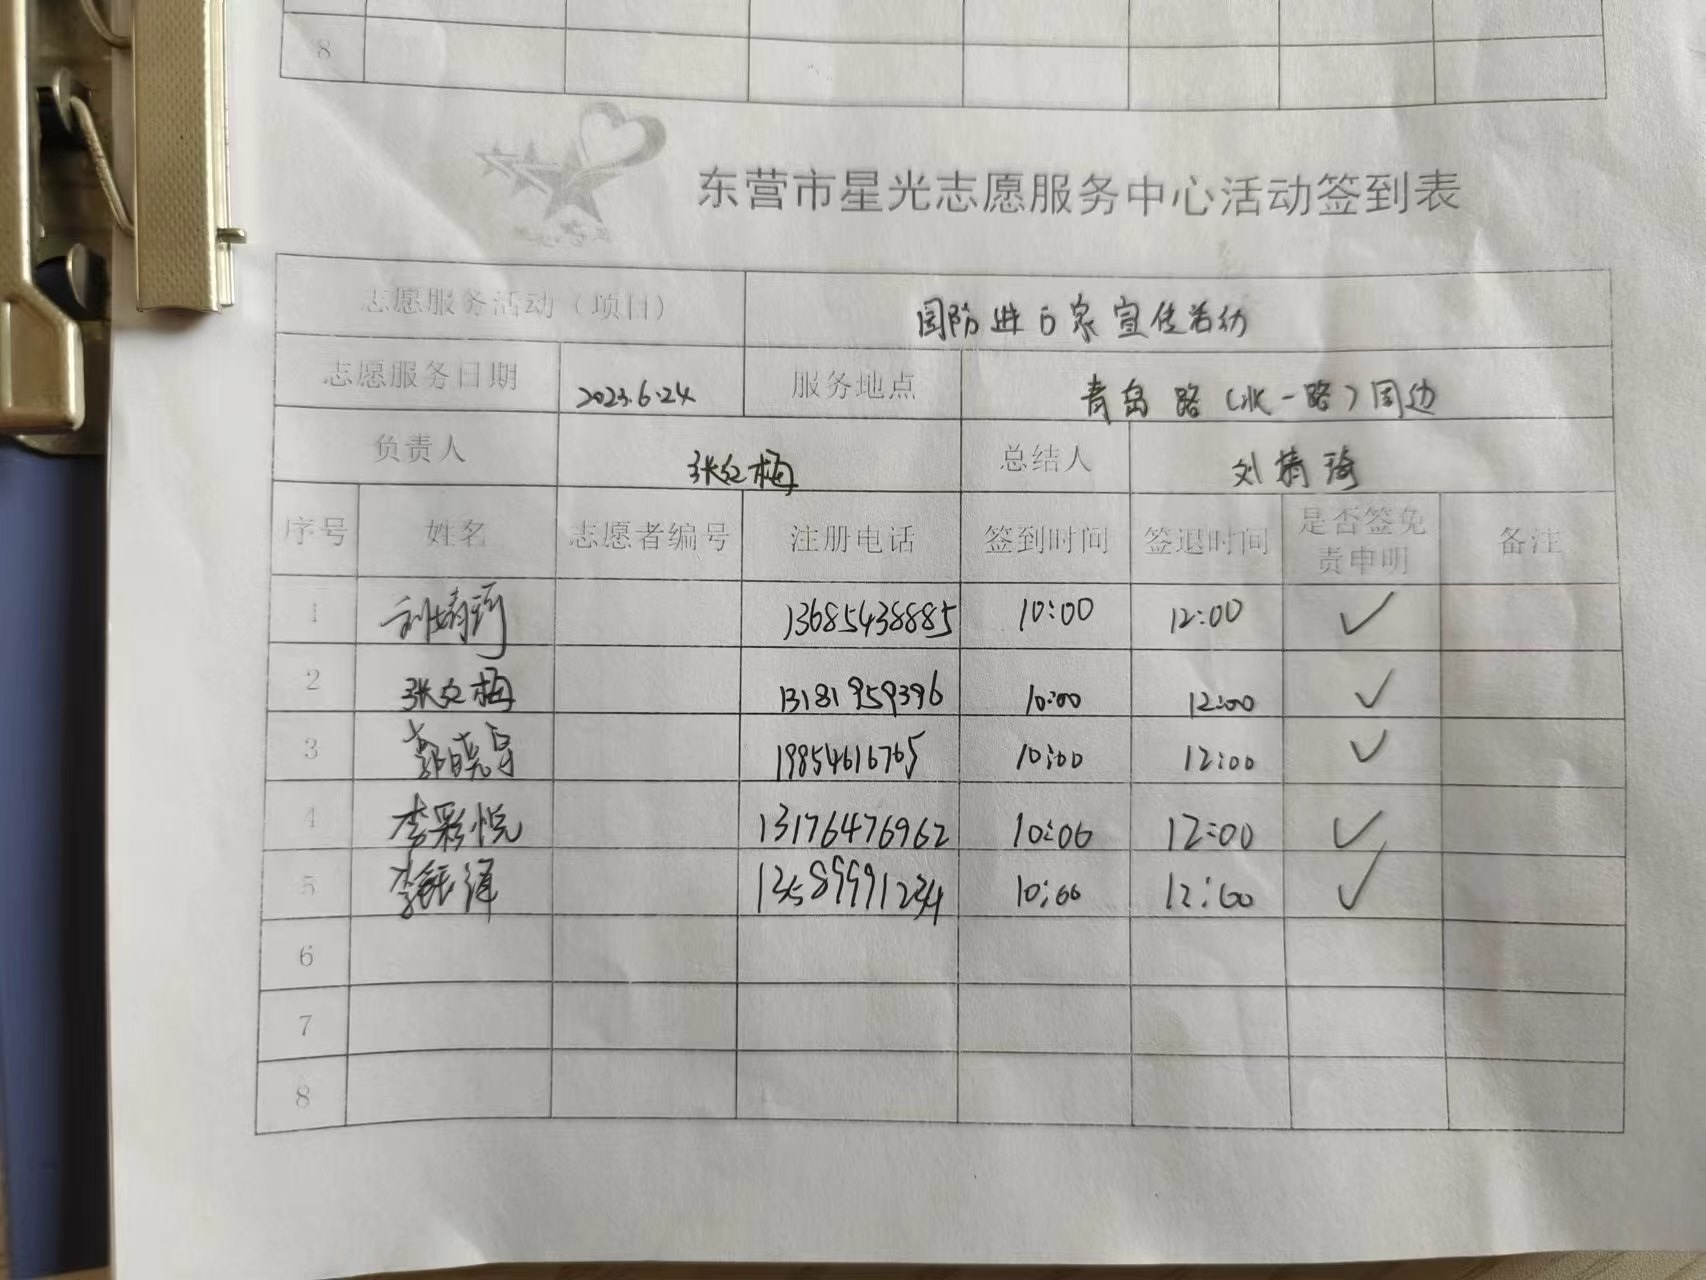 8
东营市星光志愿服务中心活动签到表
志愿服务活动（项目） 国防进百家宣传活动
志愿服务日期 2023.6.24 服务地点 青岛路（北一路）周边
负责人 张红梅 总结人 刘婧琦
序号 姓名 志愿者编号 注册电话 签到时间 签退时间 是否签免责申明 备注
1 13685438885 10:00 12:00 ✓
2 张红梅 13181959396 10:00 12:00 ✓
3 19854616765 10:00 12:00 ✓
4 李彩悦 13176476962 10:00 12:00 ✓
5 10:00 12:00 ✓
6
7
8